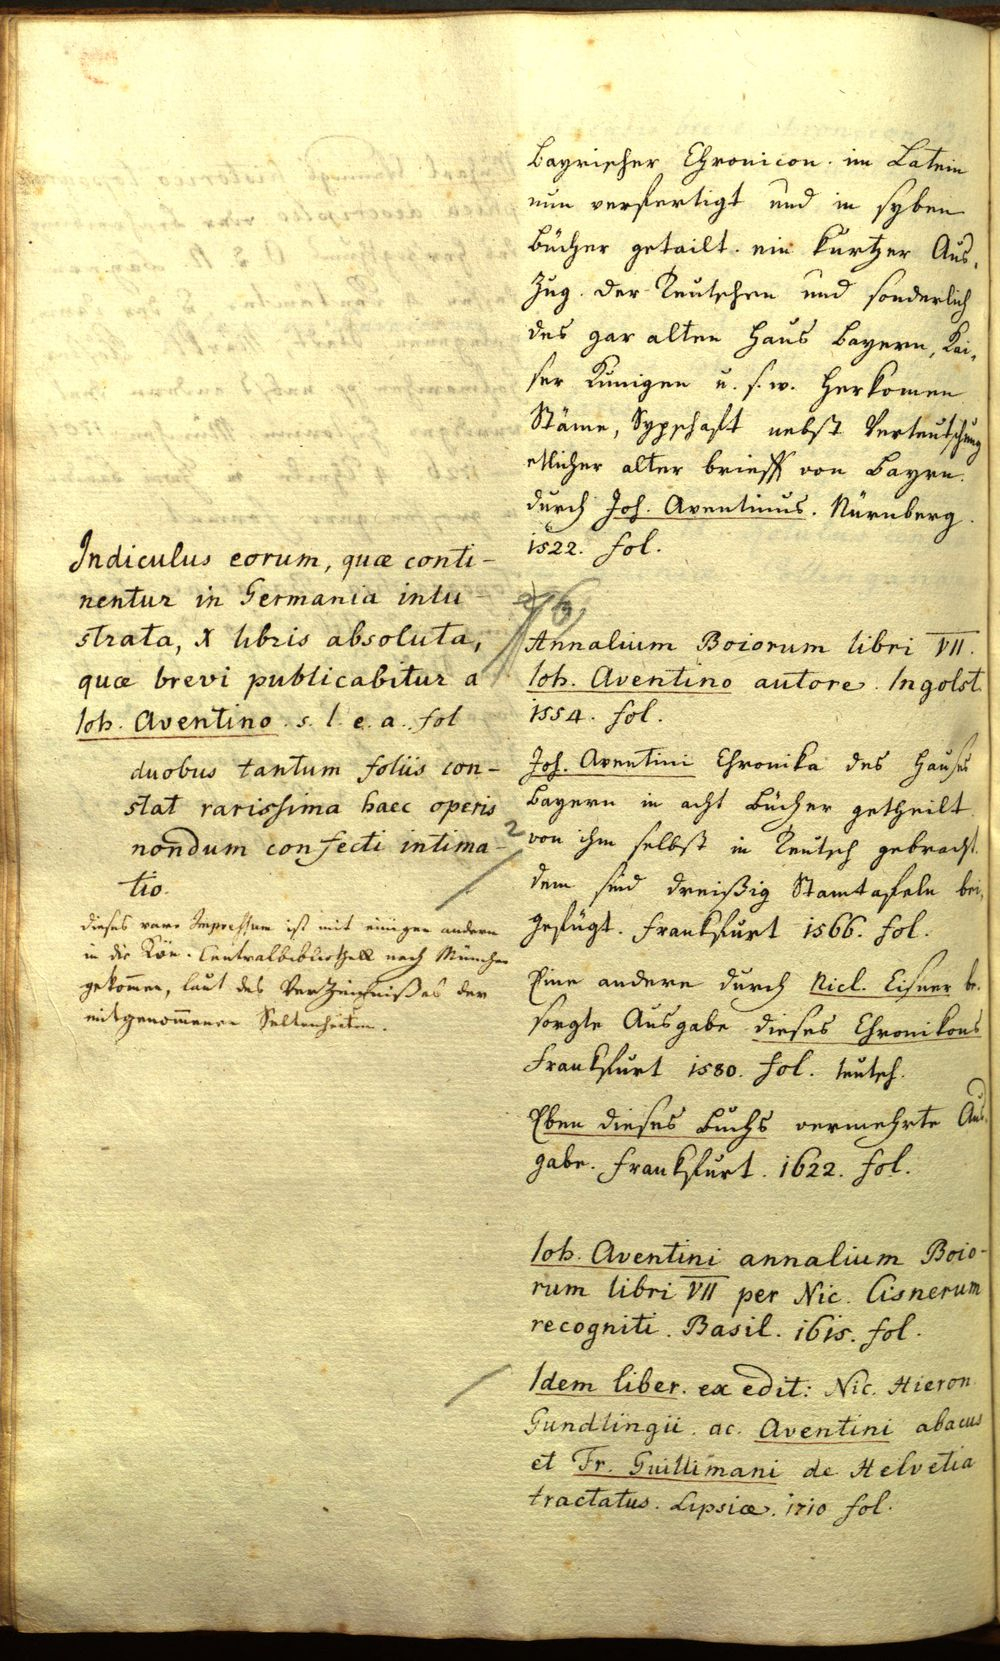 Indiculus eorum, quæ conti-
nentur in Germania inlu-
strata, X libris absoluta,
quæ brevi publicabitur a
Ioh. Aventino. s. l. e. a. fol
duobus tantum foliis con-
stat rarissima haec operis
nondum confecti intima-
tio.
dieses rare Impressum ist mit einigen andern
in die Kön. Centralbibliothek nach München
gekom̅en, laut des Verzeichnißes der
mitgenom̅enen Seltenheiten.
Bayrischer Chronicon. im Latein
nun verfertigt und in syben
Bücher getailt. ein kurtzer Aus-
zug. der Teutschen und sonderlich
des gar alten Haus Bayern, Kai-
ser Kunigen u. s. w. Herkomen
Stäme, Sypschaft nebst Verteutschung
etlicher alter brieff von Bayrn.
durch Joh. Aventinus. Nürnberg.
1522. fol.
Annalium Boiorum libri VII.
Ioh. Aventino autore. Ingolst.
1554. fol.
Joh. Aventini Chronika des Hauses
Bayern in acht Bücher getheilt
2 von ihm selbst in Teutsch gebracht.
dem sind dreißig Stamtafeln bei-
gefügt. Frankfurt 1566. fol.
Eine andere durch Nicl. Cisner be-
sorgte Ausgabe dieses Chronikons
Frankfurt 1580. fol. teutsch.
Eben dieses Buchs vermehrte Aus-
gabe. Frankfurt. 1622. fol.
Ioh. Aventini annalium Boio-
rum libri VII per Nic. Cisnerum
recogniti. Basil. 1615. fol.
Idem liber. ex edit: Nic. Hieron
Gundlingii. ac. Aventini abacus
et Fr. Guillimani de Helvetia
tractatus. Lipsiæ. 1710 fol.